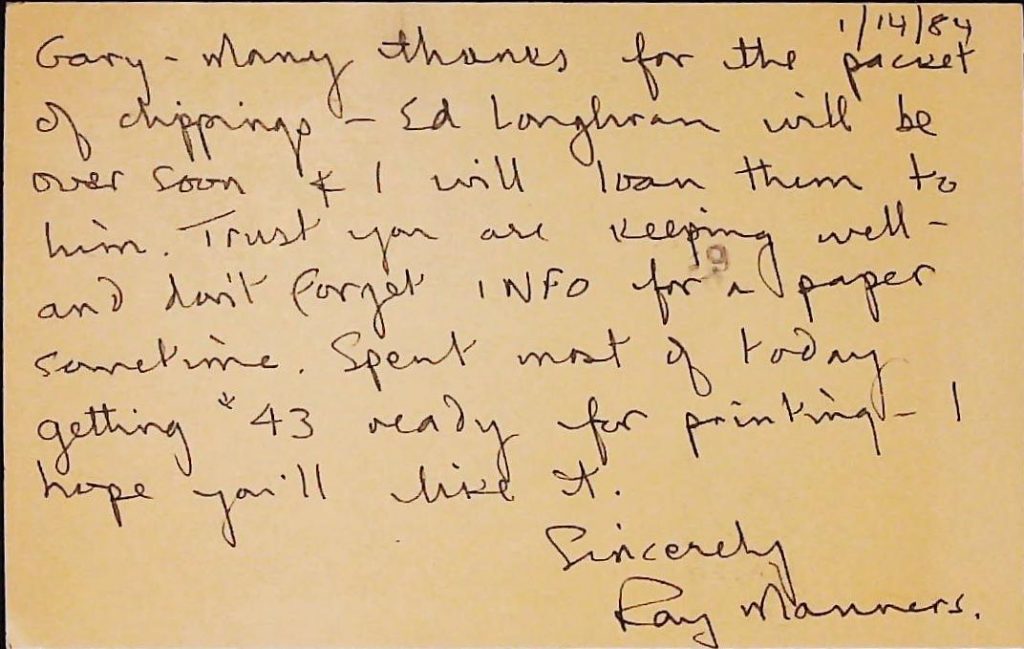 1/14/84
Gary - Many thanks for the packet
of clippings - Ed Longhran will be
over soon & I will loan them to
him. Trust you are keeping well -
and don't forget INFO for a paper
sometime. Spent most of today
getting #43 ready for printing - I
hope you'll like it.
Sincerely
Ray Manners.